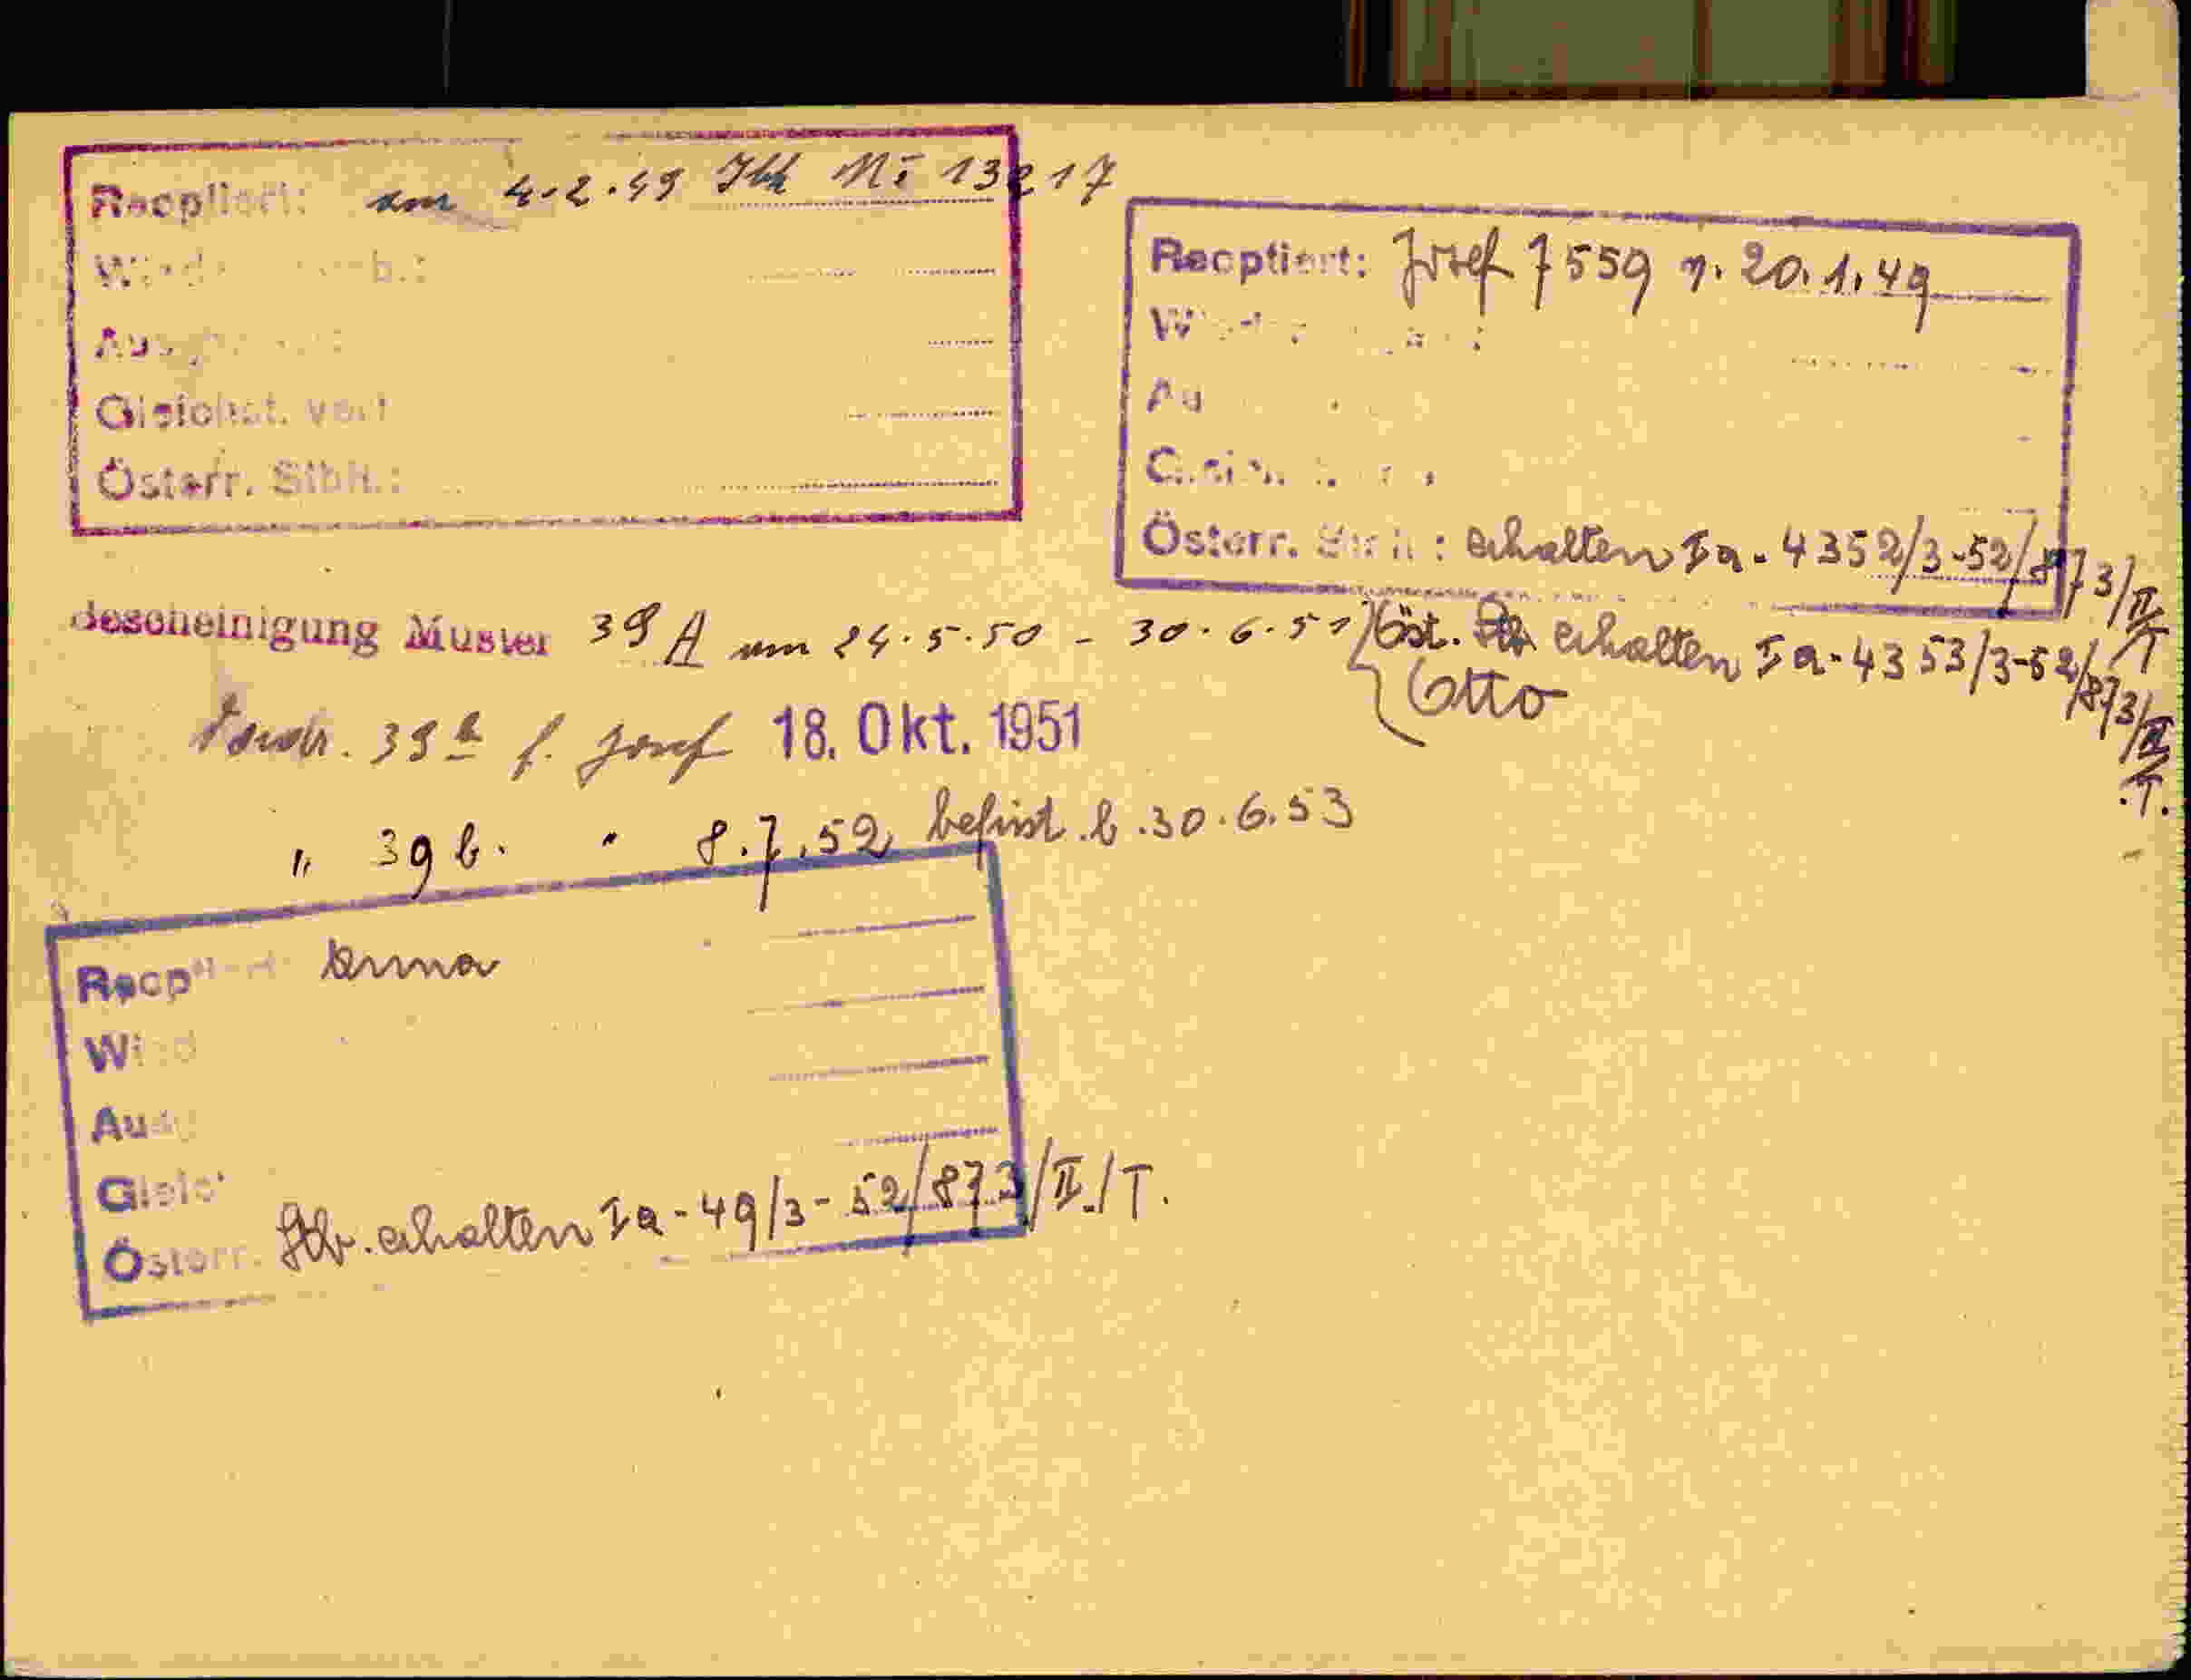 Reoptiert: am 4.2.49 13217
Gleichst.
Österr. Stbh.:
Reoptiert: Josef 7559 v. 20.1.49
Österr. Stbh.: erhalten Ia-4352/3-52/873/II/T
Bescheinigung Muster 39 A am 24.5.50 - 30.6.51
Öst. erhalten Ia-4353/3-52/873/II/T.
Otto
39 b f. Josef 18. Okt. 1951
" 39 b. " 8.7.52 befrist. b. 30.6.53
Reoptiert: Anna
Österr. Stb. erhalten Ia-49/3-52/873/II./T.